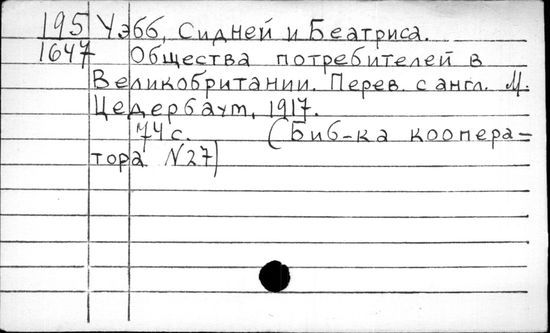 195 Уэбб, Сидней и Беатриса.
1647 Общества потребителей в
Великобритании. Перев. с англ. М.
Цедербаум, 1917.
74 с. (Биб-ка коопера=
тора N27)